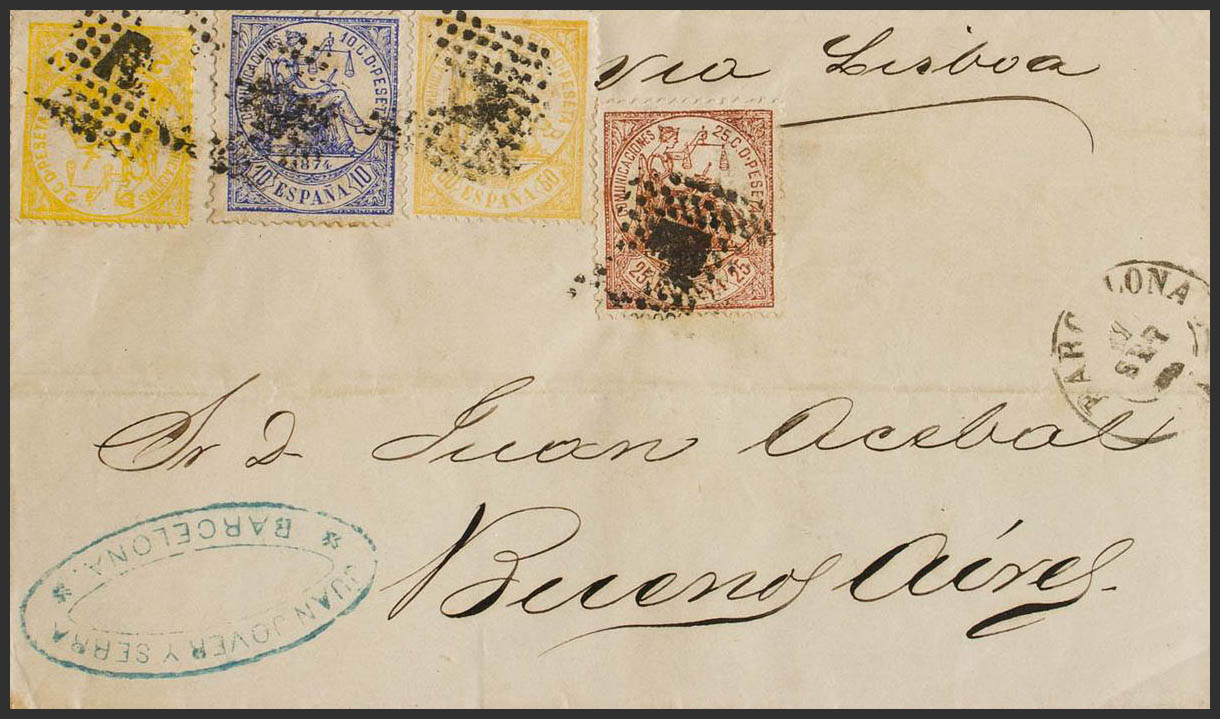 via Lisboa
2 C. D. PESETA
COMUNICACIONES 10 C. D. PESETA
1874
10 ESPAÑA 10
C. D. PESETA
ESPAÑA 50
COMUNICACIONES 25 C. D. PESETA
25 25
BARCELONA
SET
Sr D. Juan Acebal
Buenos Aires.
BARCELONA.
JUAN JOVER Y SERRA